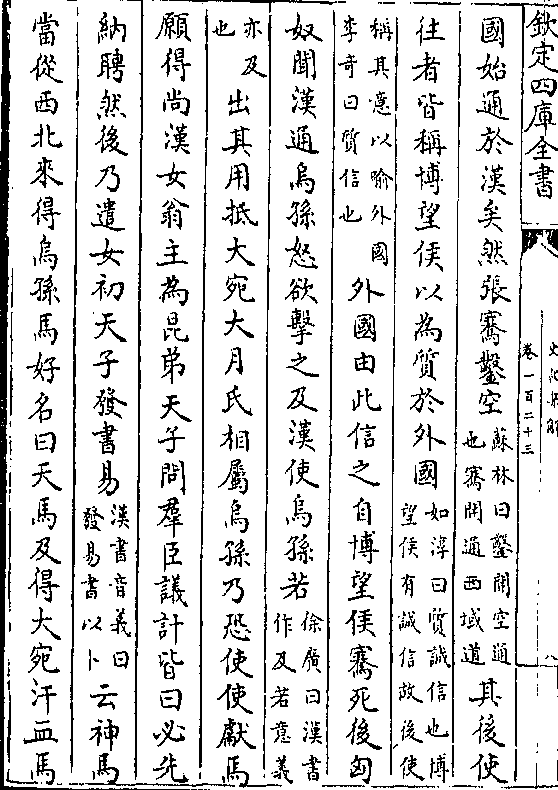 欽定四庫全書
史記集解
卷一百二十三
八
國始通於漢矣然張騫鑿空蘇林曰鑿開空通也騫開通西域道其後使
往者皆稱博望侯以為質於外國如淳曰質誠信也博望侯有誠信故後使
稱其意以喻外國李奇曰質信也外國由此信之自博望侯騫死後匈
奴聞漢通烏孫怒欲擊之及漢使烏孫若徐廣曰漢書作及若意義
亦及也出其用抵大宛大月氏相屬烏孫乃恐使使獻馬
願得尚漢女翁主為昆弟天子問羣臣議計皆曰必先
納聘然後乃遣女初天子發書易漢書音義曰發易書以卜云神馬
當從西北來得烏孫馬好名曰天馬及得大宛汗血馬